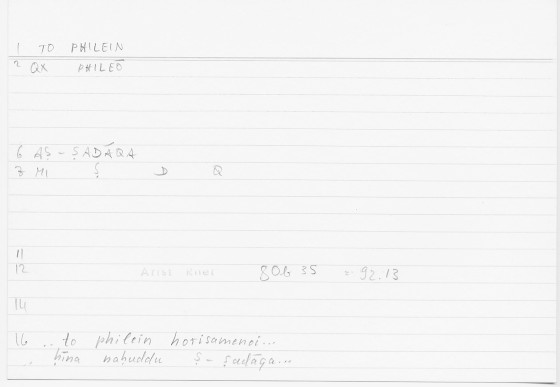 1 TO PHILEIN
2 QX PHILEŌ
6 AṢ - ṢADĀQA
7 MI Ṣ D Q
11
12 80b 35 = 92.13
14
16 .. to philein horisamenoi...
.. ḥīna naḥuddu ṣ - ṣadāqa...